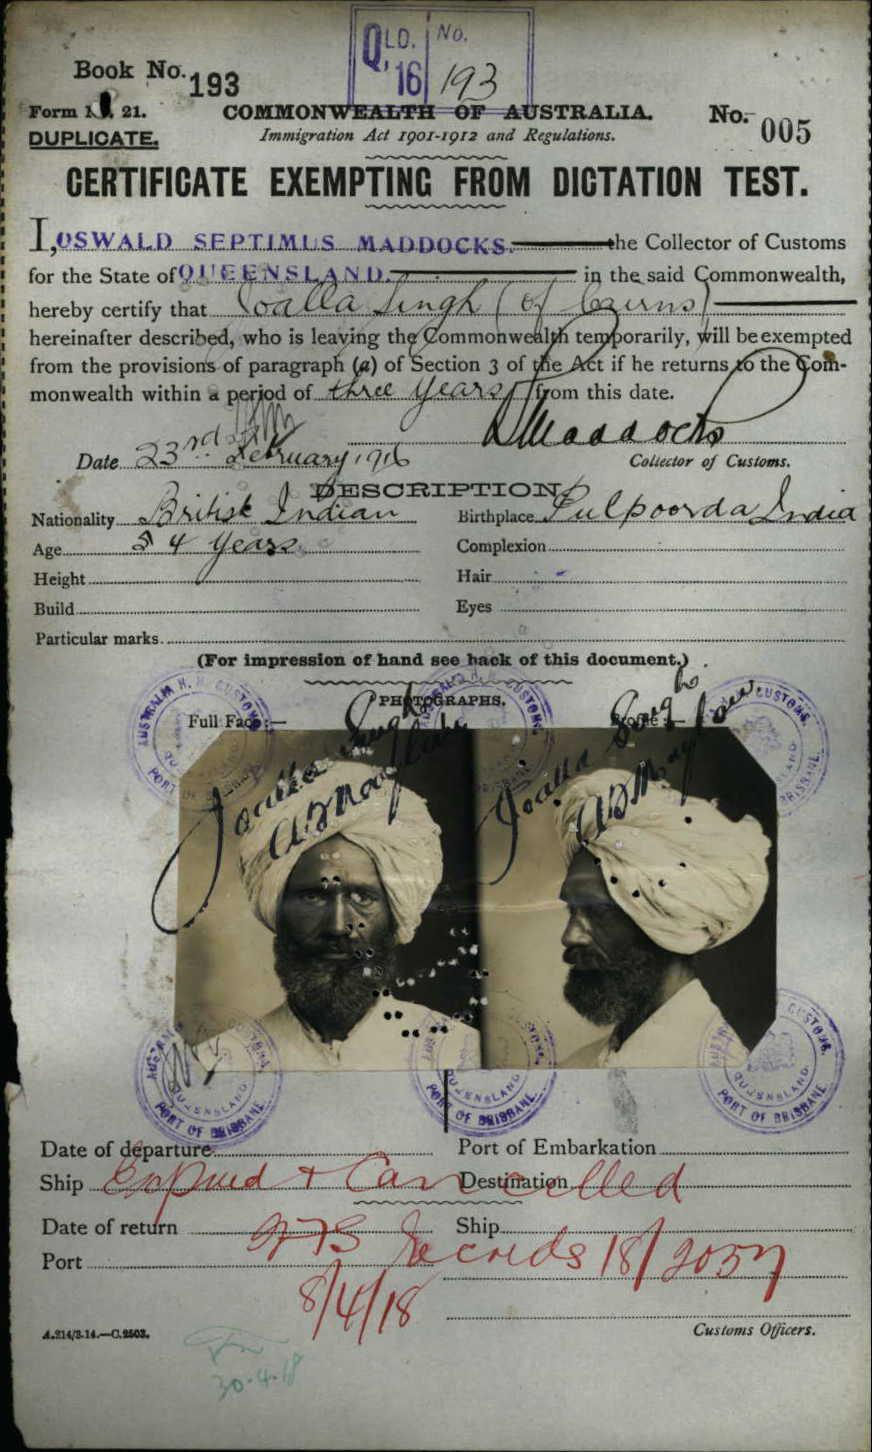 QLD. No.
'16 193
Book No. 193
Form 21.
COMMONWEALTH OF AUSTRALIA.
No. 005
DUPLICATE.
Immigration Act 1901-1912 and Regulations.
CERTIFICATE EXEMPTING FROM DICTATION TEST.
I, OSWALD SEPTIMUS MADDOCKS. the Collector of Customs
for the State of QUEENSLAND. in the said Commonwealth,
hereby certify that Joalla Singh (of Cairns)
hereinafter described, who is leaving the Commonwealth temporarily, will be exempted
from the provisions of paragraph (a) of Section 3 of the Act if he returns to the Com-
monwealth within a period of three years from this date.
Maddocks
Date 23rd February 1916
Collector of Customs.
DESCRIPTION
Nationality British Indian Birthplace Pulpoorda India
Age 54 years Complexion
Height Hair
Build Eyes
Particular marks.
(For impression of hand see back of this document.)
PHOTOGRAPHS.
Full Face:— Profile:—
Joalla Singh
Joalla Singh
AUSTRALIA H. M. CUSTOMS. QUEENSLAND. PORT OF BRISBANE.
AUSTRALIA CUSTOMS. BRISBANE
CUSTOMS. QUEENSLAND. BRISBANE.
AUSTRALIA CUSTOMS. QUEENSLAND. PORT OF BRISBANE.
CUSTOMS. QUEENSLAND. PORT OF BRISBANE.
CUSTOMS. QUEENSLAND. PORT OF BRISBANE.
Date of departure Port of Embarkation
Ship Destination
Expired & Cancelled
Date of return Ship
Port
Records 18/2057
8/4/18
Customs Officers.
A.214/3.14.—C.2503.
30.4.18